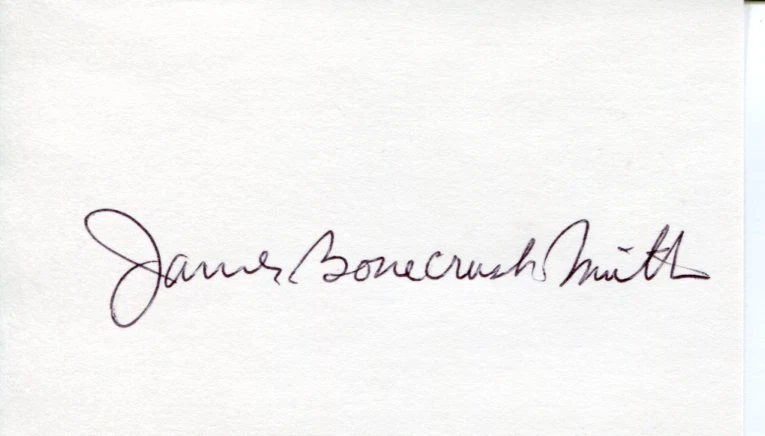 James Bonecrush Smith